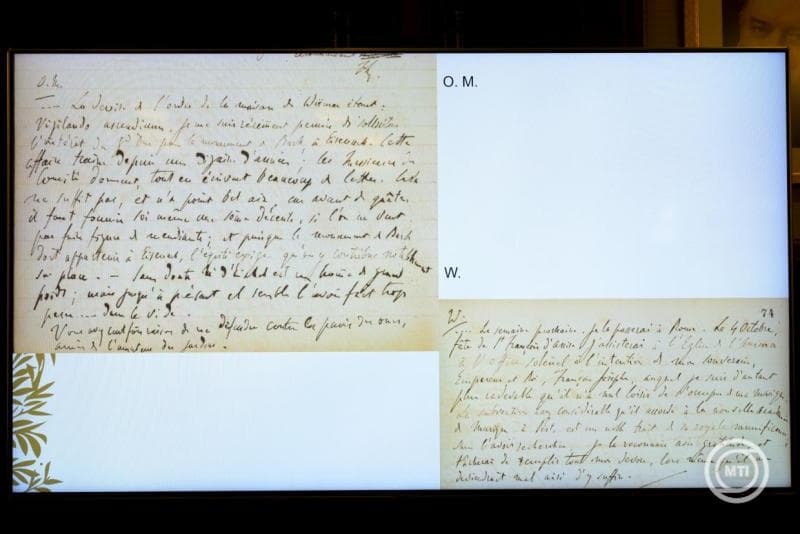 O. M.
La devise de l'ordre de la maison de Weimar étant:
Vigilando ascendimus - je me suis récemment permis de solliciter
l'intérêt du Gd Duc pour le monument de Bach, à Eisenach. Cette
affaire traine depuis une dizaine d'années; les Messieurs du
Comité dorment, tout en écrivant beaucoup de lettres. Cela
ne suffit pas, et n'a point bel air, car avant de quêter
il faut fournir soi même une somme décente, si l'on ne veut
pas faire figure de mendiants; et puisque le monument de Bach
doit appartenir à Eisenach, l'équité exige qu'on y contribue notablement
sur place. — Sans doute Mr d'Eichel est un homme de grand
poids; mais jusqu'à présent il semble l'avoir fait trop
peser ... dans le vide.
Vous avez raison de me défendre contre les pavés des ours,
amis de l'amateur des jardins.
O. M.
W.
W. 74
La semaine prochaine, je la passerai à Rome. Le 4 Octobre,
fête de St François d'Assise j'assisterai à l'Eglise de l'
à l'office solennel à l'intention de mon souverain,
Empereur et Roi, François Joseph, auquel je suis d'autant
plus redevable qu'il n'a nul loisir de s'occuper de musique.
La subvention considérable qu'il accorde à la nouvelle Académie
de musique à Pest, est un noble trait de sa royale munificence
sans l'avoir recherchée, je le reconnais avec gratitude et
tâcherai de remplir tout mon devoir, lors même qu'il me
deviendrait mal aisé d'y suffire. -
MTI